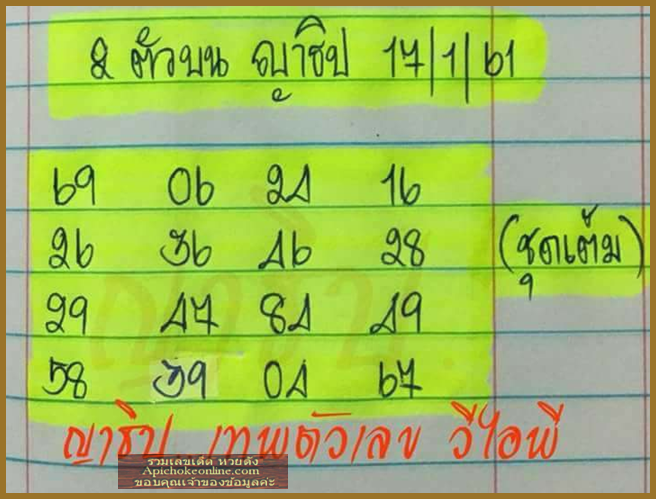 2 ตัวบน ญาธิป 17/1/61
69 06 24 16
26 36 46 28 (ชุดเต็ม)
29 47 84 49
58 39 04 67
ญาธิป เทพตัวเลข วีไอพี
รวมเลขเด็ด หวยดัง
Apichokeonline.com
ขอบคุณเจ้าของข้อมูลค่ะ